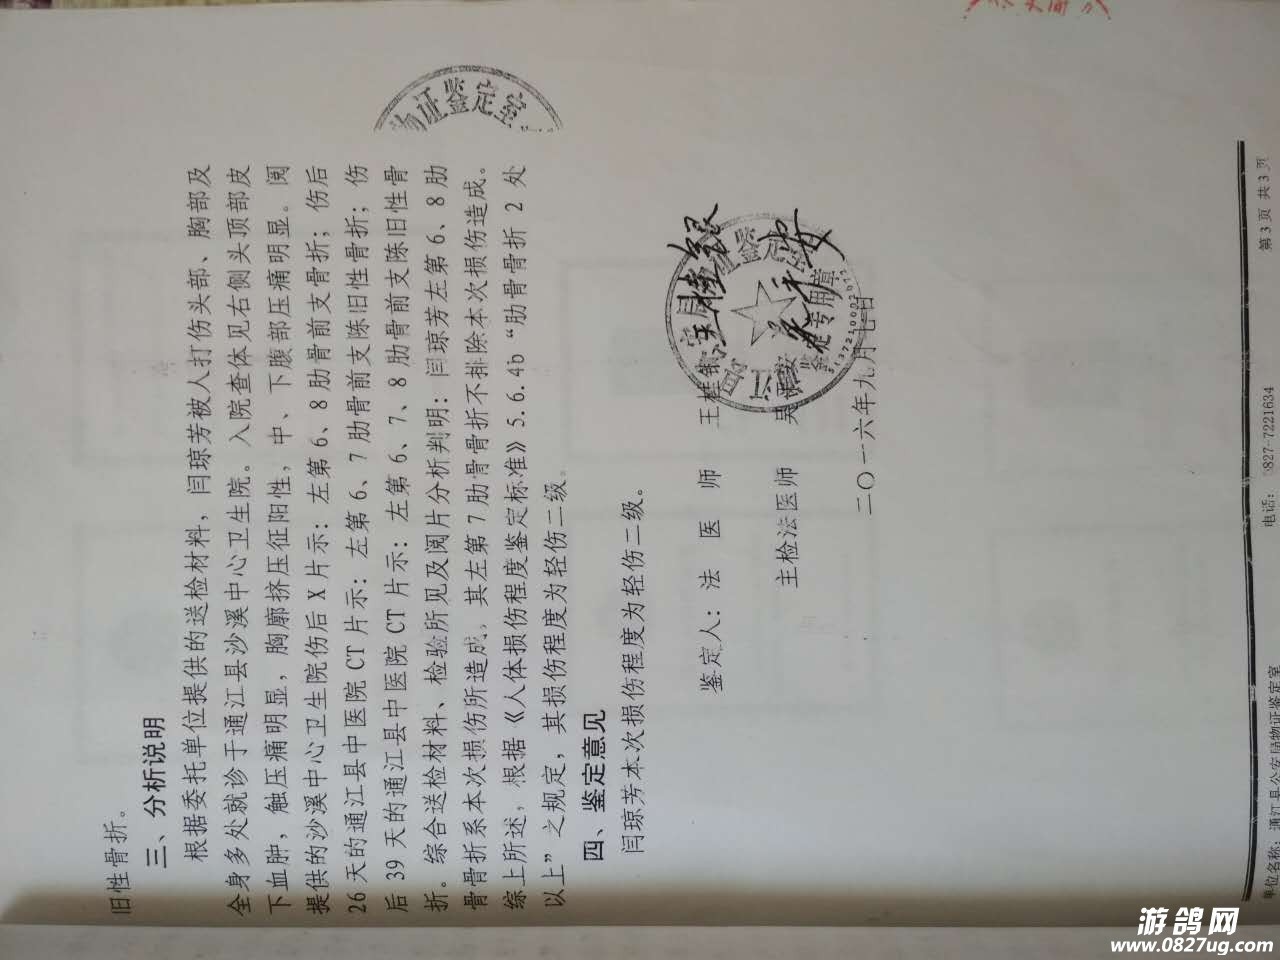 旧性骨折。
三、分析说明
根据委托单位提供的送检材料，闫琼芳被人打伤头部、胸部及
全身多处就诊于通江县沙溪中心卫生院。入院查体见右侧头顶部皮
下血肿，触压痛明显，胸廓挤压征阳性，中、下腹部压痛明显。阅
提供的沙溪中心卫生院伤后X片示：左第6、8肋骨前支骨折；伤后
26天的通江县中医院CT片示：左第6、7肋骨前支陈旧性骨折；伤
后39天的通江县中医院CT片示：左第6、7、8肋骨前支陈旧性骨
折。综合送检材料、检验所见及阅片分析判明：闫琼芳左第6、8肋
骨骨折系本次损伤所造成，其左第7肋骨骨折不排除本次损伤造成。
综上所述，根据《人体损伤程度鉴定标准》5.6.4b“肋骨骨折2处
以上”之规定，其损伤程度为轻伤二级。
四、鉴定意见
闫琼芳本次损伤程度为轻伤二级。
鉴定人：法医师 王桂银
主检法医师 吴平安
二〇一六年九月七日
物证鉴定室
鉴定专用章
单位名称：通江县公安局物证鉴定室 电话：0827-7221634 第3页 共3页
游鸽网
www.0827ug.com